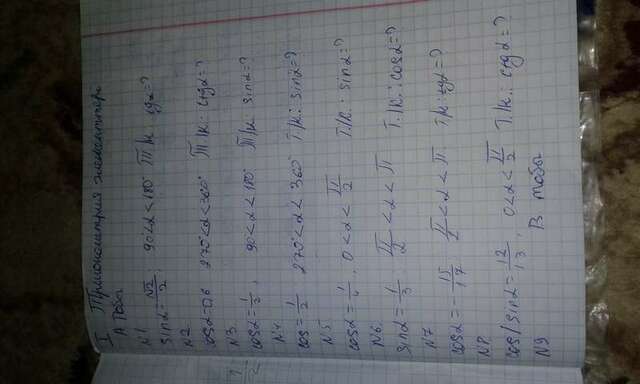 I Тригонометрия элементтері
А тобы
N1
sinα = √2/2; 90°<α<180° Т/к: tgα=?
N2
cosα=0,6 270°<α<360° Т/к: ctgα=?
N3
cosα=1/2, 90°<α<180° Т/к sinα=?
N4
cos=1/2 270°<α<360° Т/к: sinα=?
N5
cosα=1/4, 0<α<π/2 Т/к: sinα=?
N6
sinα=1/3, π/2<α<π Т/к: cosα=?
N7
cosα=-15/17 π/2<α<π. Т/к: tgα=?
N8
cos/sinα=12/13, 0<α<π/2 Т/к: ctgα=?
N9 В тобы